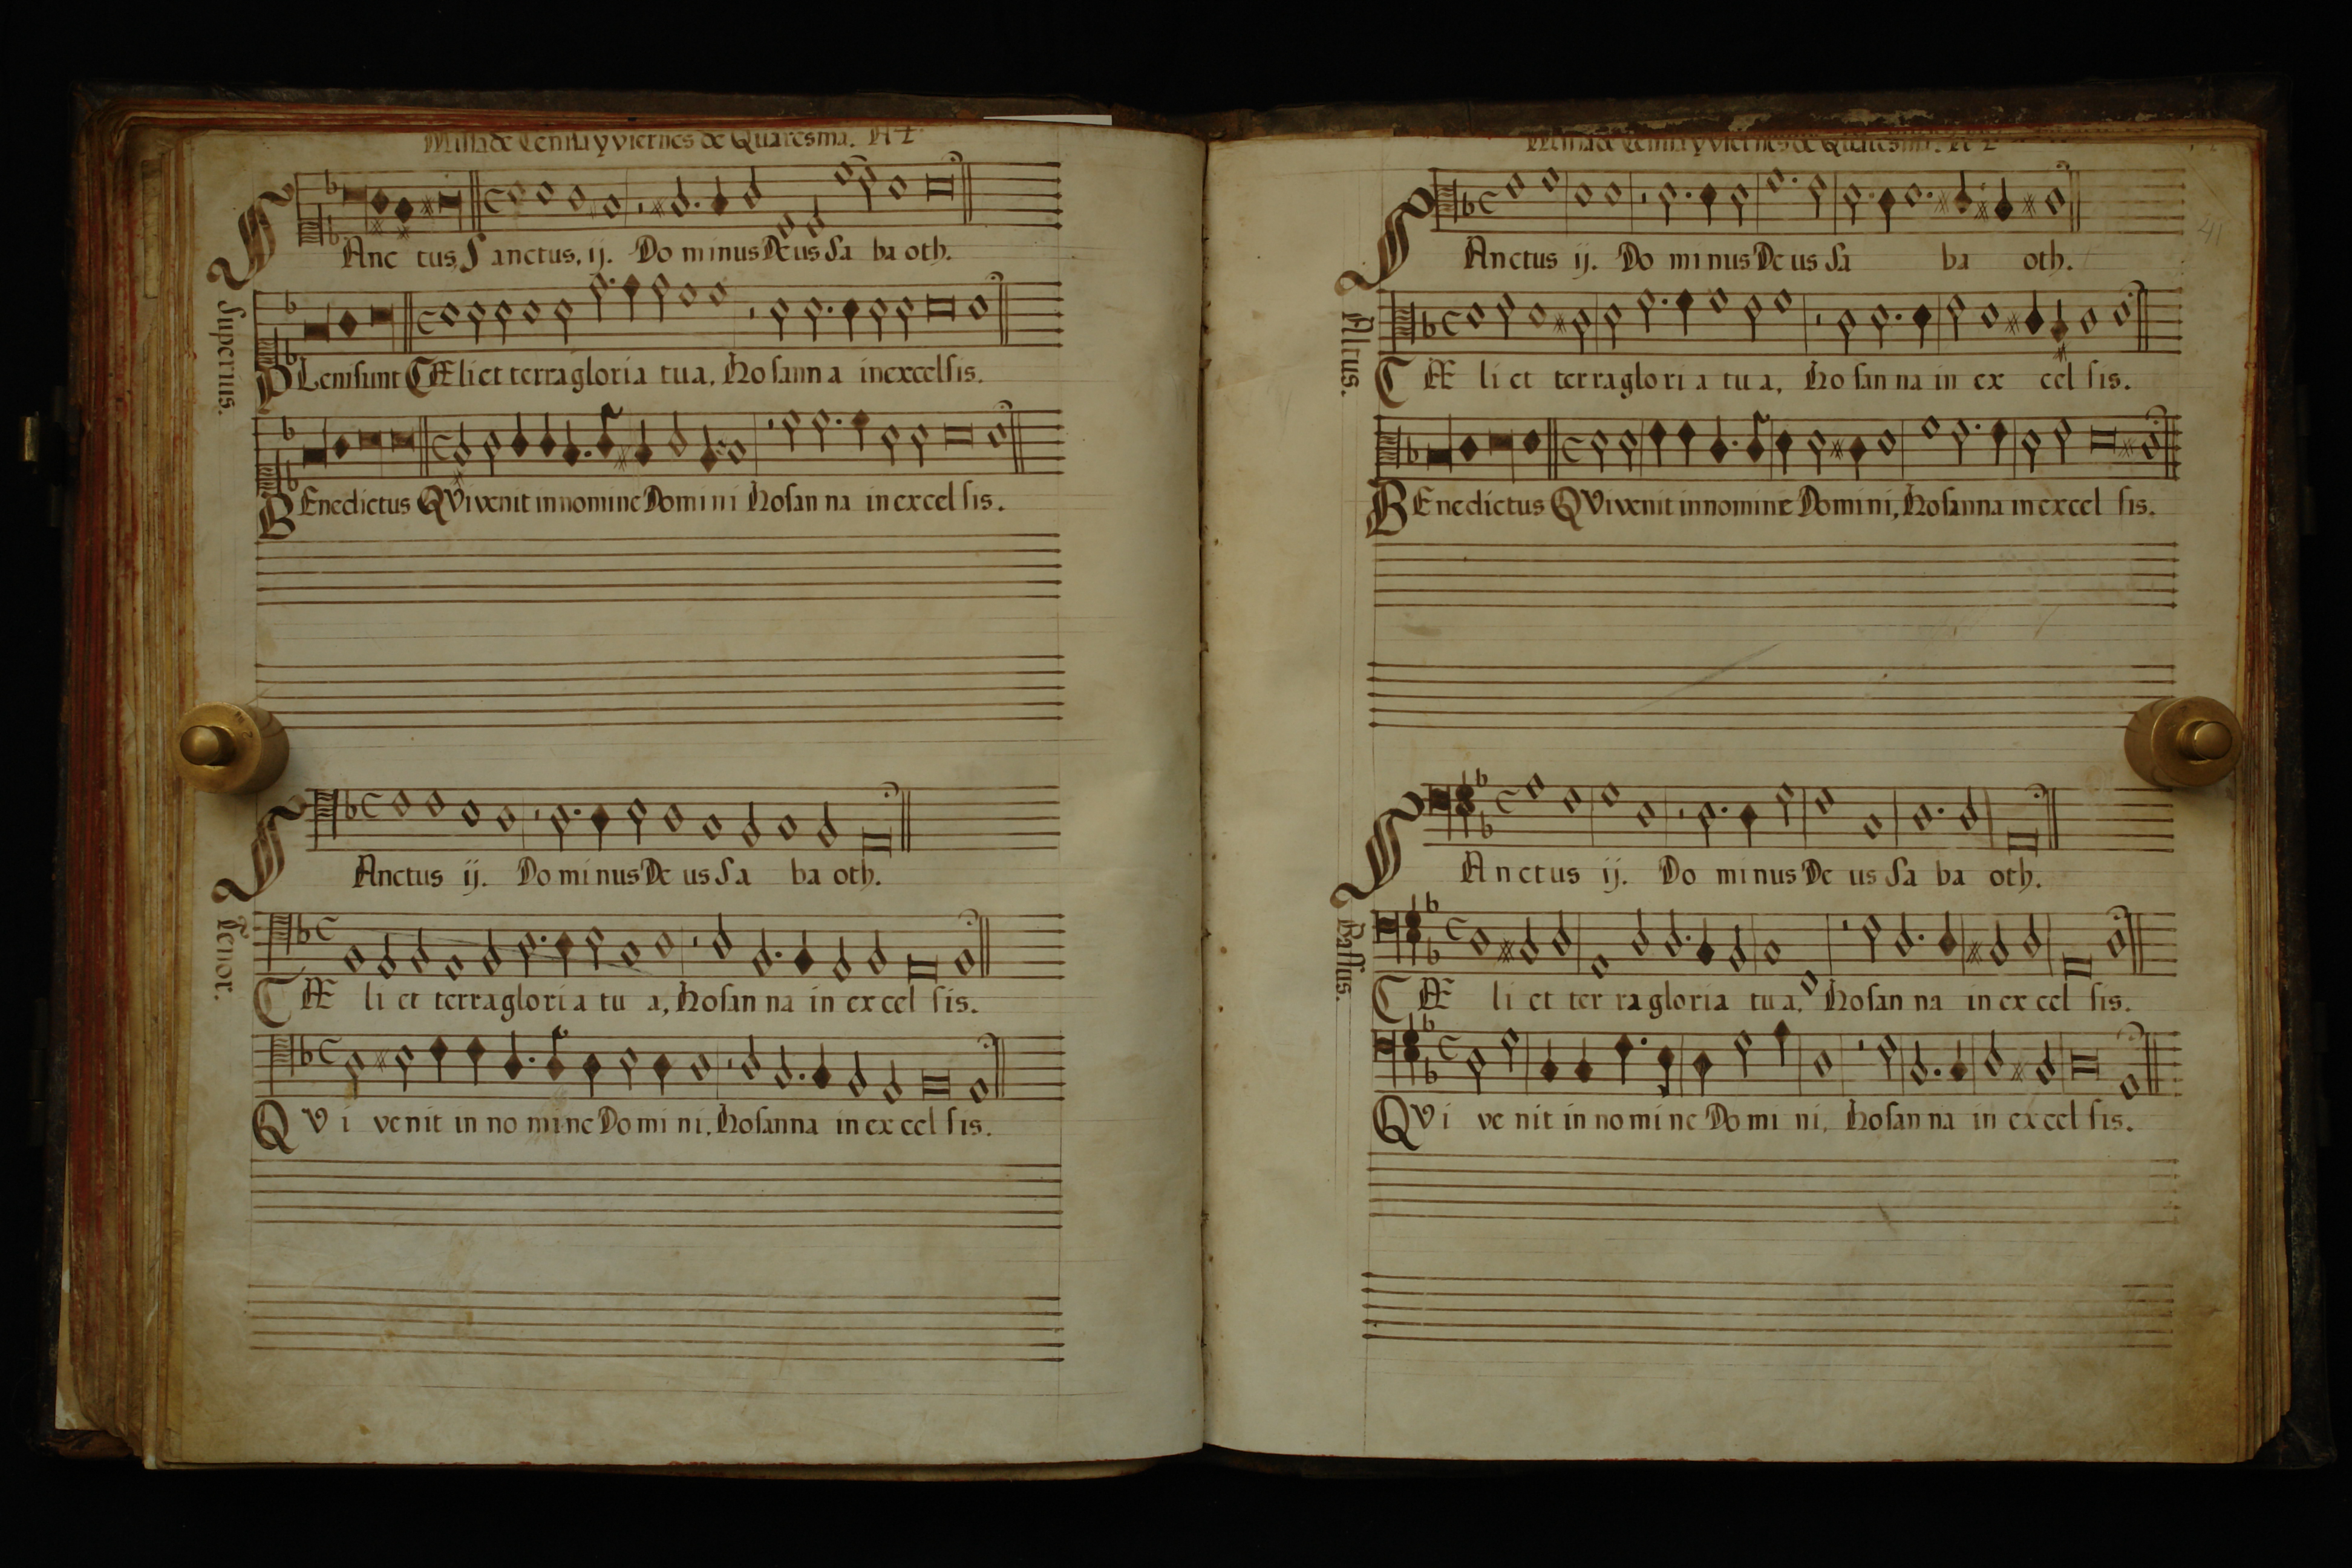 Missa de Ceniza y viernes de Quaresma. A 4
SAnc tus, Sanctus, ij. Do minus Deus Sa ba oth.
Supernus.
PLeni sunt CÆli et terra gloria tua, Hosanna in excelsis.
BEnedictus QVi venit in nomine Domini Hosanna in excelsis.
SAnctus ij. Do minus De us Sa ba oth.
Tenor.
CÆ li et terra gloria tu a, Hosanna in excelsis.
QVi venit in nomine Domini, Hosanna in excelsis.
Missa de Ceniza y viernes de Quaresma. A 4
41
SAnctus ij. Do minus De us Sa ba oth.
Altus.
CÆ li et terra gloria tua, Hosanna in ex cel sis.
BEnedictus QVi venit in nomine Domini, Hosanna in excel sis.
SAnctus ij. Do minus De us Sa ba oth.
Bassus.
CÆ li et terra gloria tua, Hosanna in excel sis.
QVi venit in nomine Domini, Hosanna in excel sis.